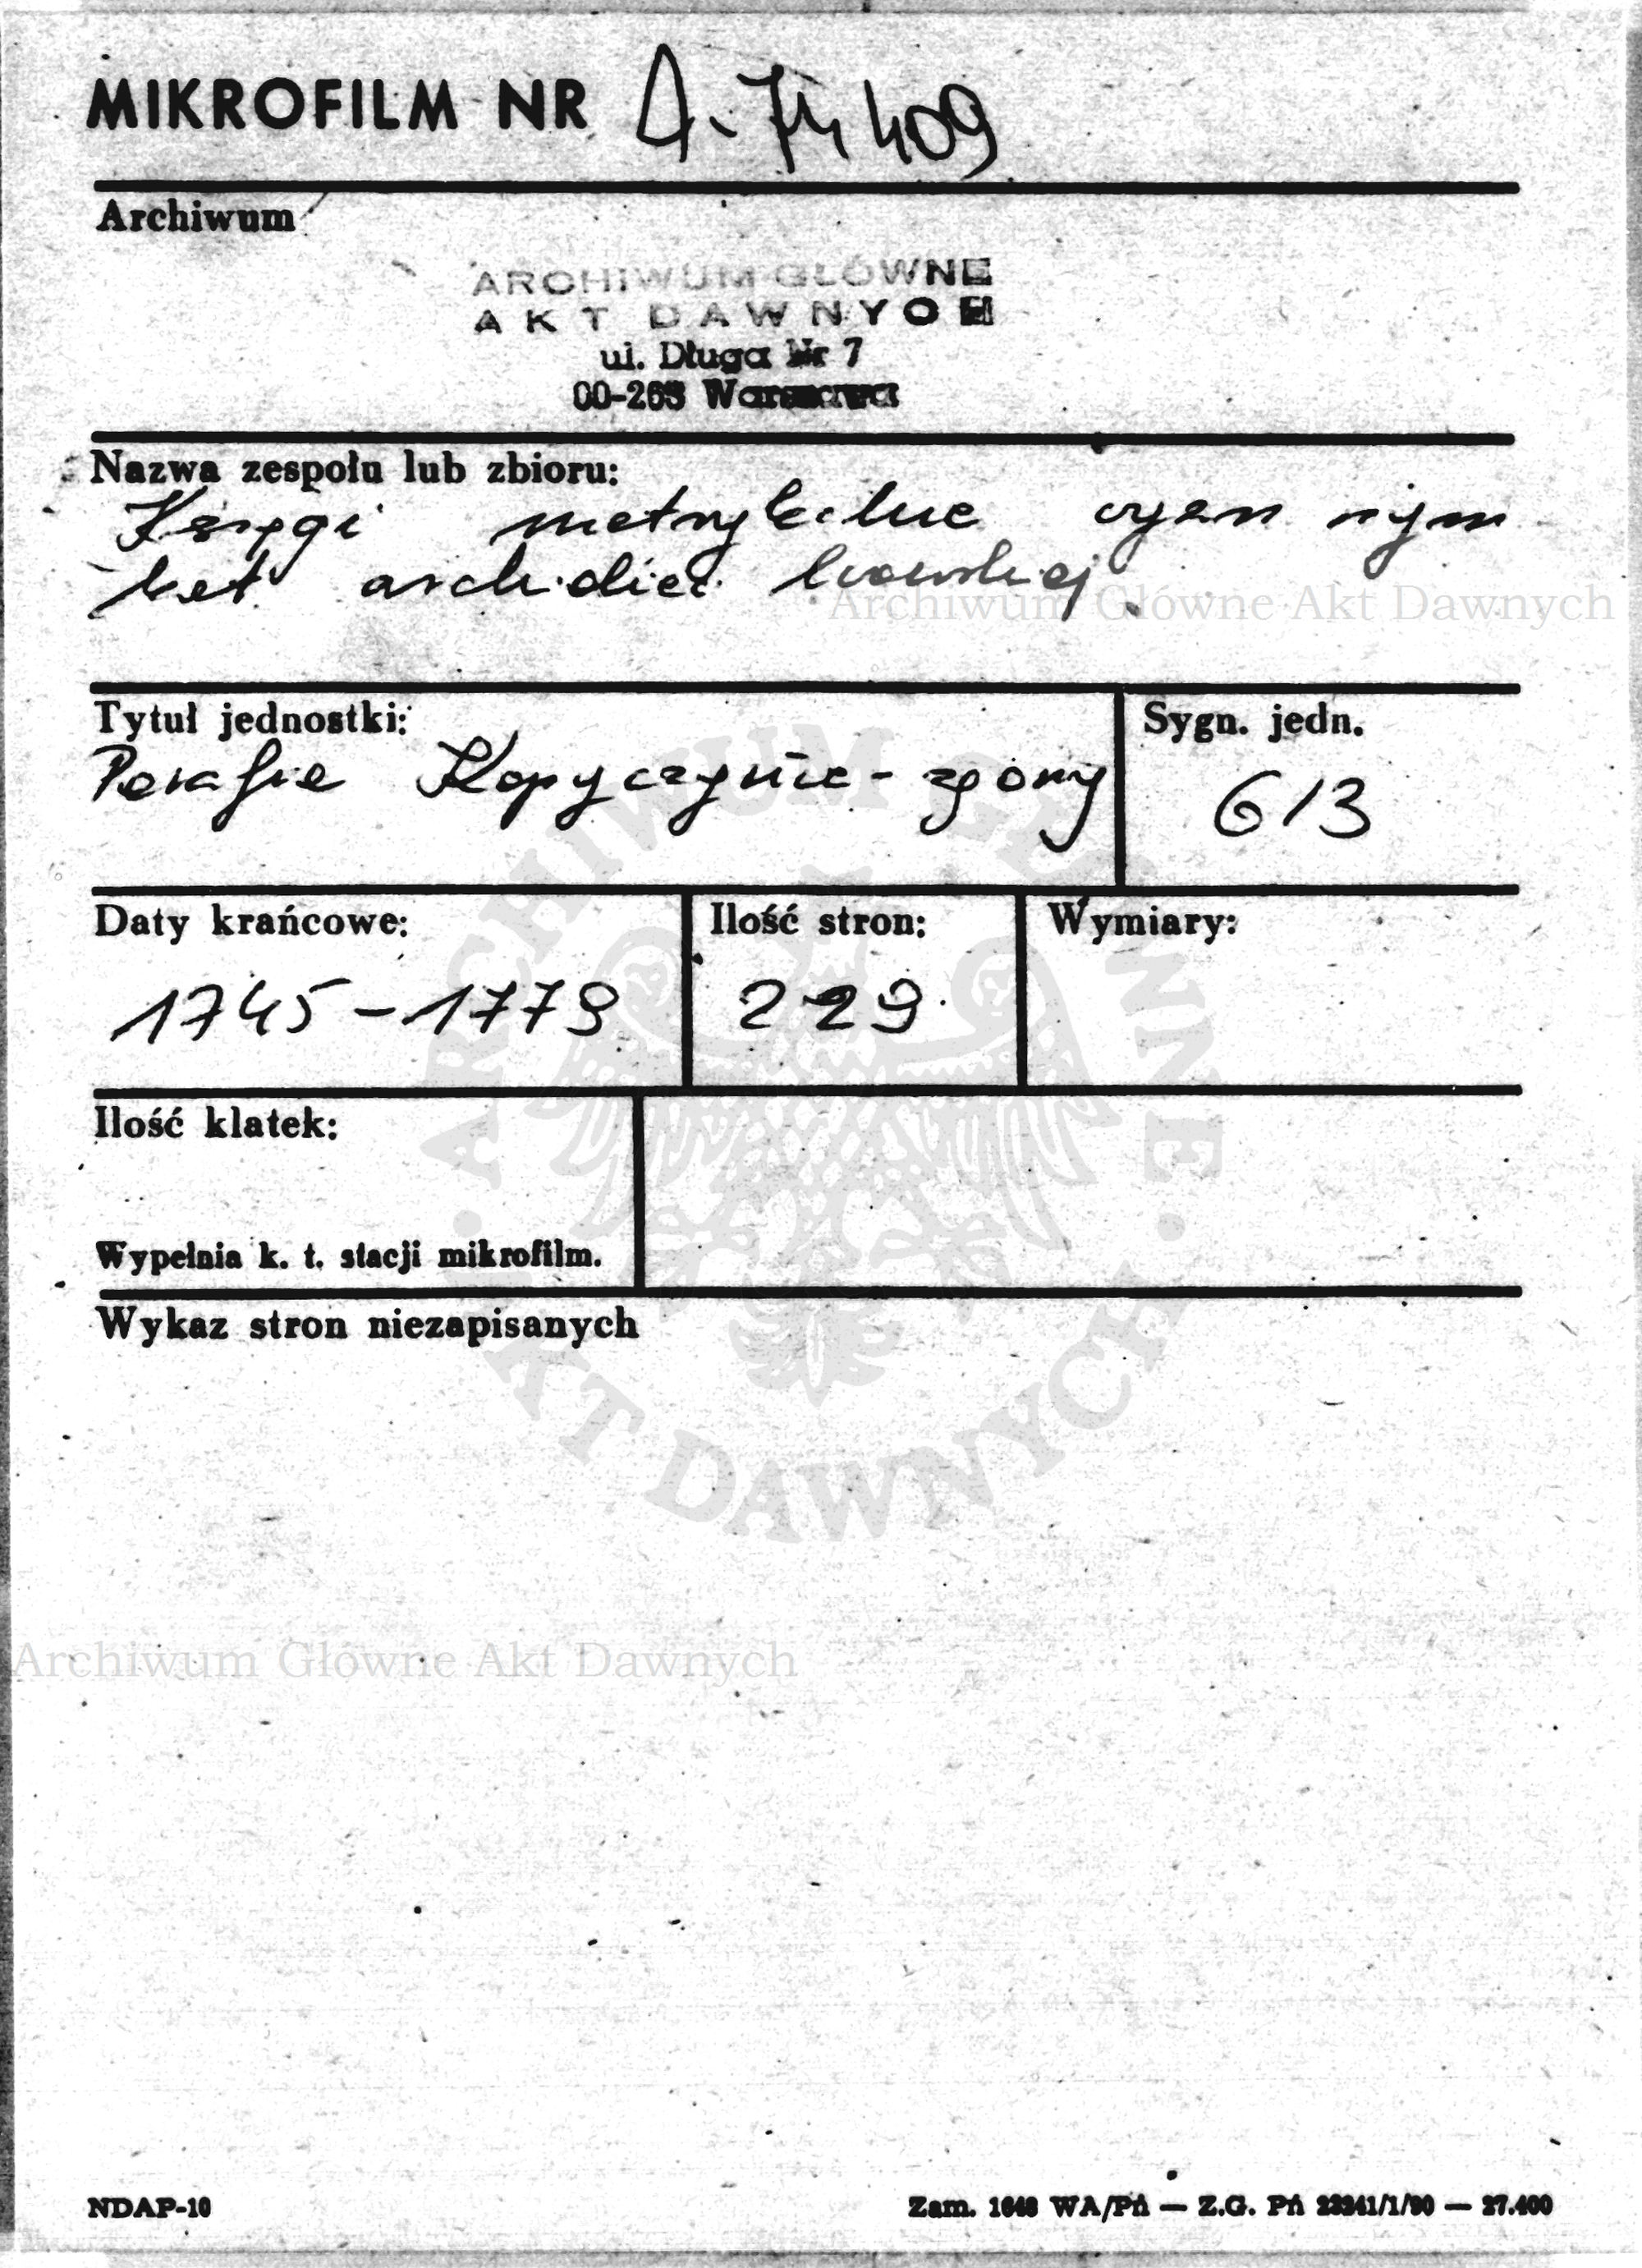 MIKROFILM NR A-74409
Archiwum
ARCHIWUM GŁÓWNE
AKT DAWNYCH
ul. Długa Nr 7
00-263 Warszawa
Nazwa zespołu lub zbioru:
Księgi metrykalne wyzn rzym
kat archidiec lwowskiej
Archiwum Główne Akt Dawnych
Tytuł jednostki:
Parafia Kopyczyńce - zgony
Sygn. jedn.
613
Daty krańcowe:
1745-1779
Ilość stron:
229
Wymiary:
Ilość klatek:
Wypełnia k. t. stacji mikrofilm.
Wykaz stron niezapisanych
ARCHIWUM GŁÓWNE · AKT DAWNYCH ·
Archiwum Główne Akt Dawnych
NDAP-10
Zam. 1648 WA/Pń — Z.G. Pń — 27.400